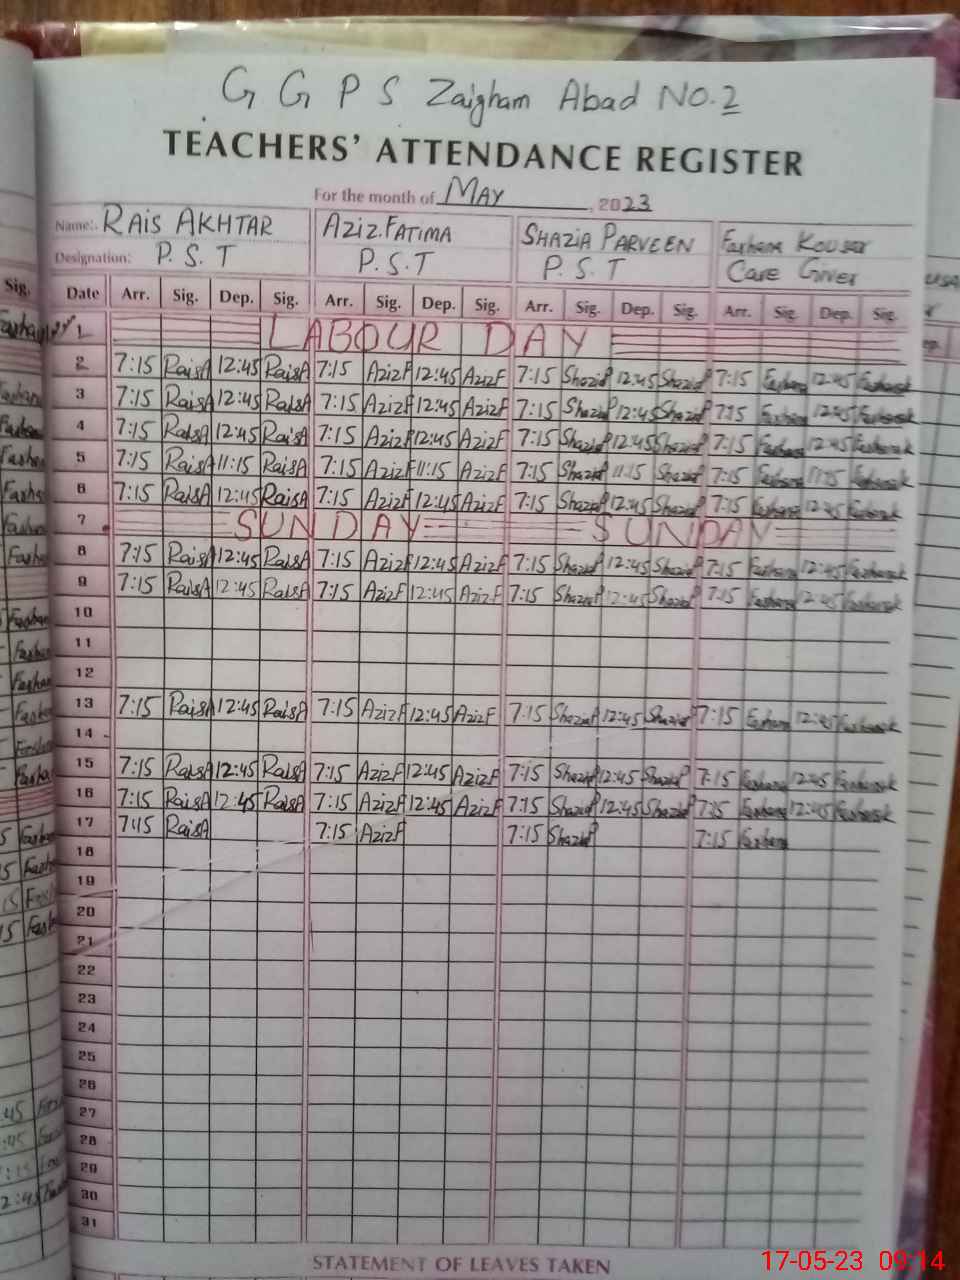 G G P S Zaigham Abad NO.2
TEACHERS' ATTENDANCE REGISTER
For the month of MAY, 2023
Name: RAIS AKHTAR AZIZ.FATIMA SHAZIA PARVEEN Farhana Kousar
Designation: P.S.T P.S.T P.S.T Care Giver
Date Arr. Sig. Dep. Sig. Arr. Sig. Dep. Sig. Arr. Sig. Dep. Sig. Arr. Sig. Dep. Sig.
1 LABOUR DAY
2 7:15 RaisA 12:45 RaisA 7:15 AzizF 12:45 AzizF 7:15 ShaziaP 12:45 ShaziaP 7:15 Farhana 12:45 Farhanak
3 7:15 RaisA 12:45 RaisA 7:15 AzizF 12:45 AzizF 7:15 ShaziaP 12:45 ShaziaP 7:15 Farhana 12:45 Farhanak
4 7:15 RaisA 12:45 RaisA 7:15 AzizF 12:45 AzizF 7:15 ShaziaP 12:45 ShaziaP 7:15 Farhana 12:45 Farhanak
5 7:15 RaisA 11:15 RaisA 7:15 AzizF 11:15 AzizF 7:15 ShaziaP 11:15 ShaziaP 7:15 Farhana 11:15 Farhanak
6 7:15 RaisA 12:45 RaisA 7:15 AzizF 12:45 AzizF 7:15 ShaziaP 12:45 ShaziaP 7:15 Farhana 12:45 Farhanak
7 SUNDAY SUNDAY
8 7:15 RaisA 12:45 RaisA 7:15 AzizF 12:45 AzizF 7:15 ShaziaP 12:45 ShaziaP 7:15 Farhana 12:45 Farhanak
9 7:15 RaisA 12:45 RaisA 7:15 AzizF 12:45 AzizF 7:15 ShaziaP 12:45 ShaziaP 7:15 Farhana 12:45 Farhanak
10
11
12
13 7:15 RaisA 12:45 RaisA 7:15 AzizF 12:45 AzizF 7:15 ShaziaP 12:45 ShaziaP 7:15 Farhana 12:45 Farhanak
14
15 7:15 RaisA 12:45 RaisA 7:15 AzizF 12:45 AzizF 7:15 ShaziaP 12:45 ShaziaP 7:15 Farhana 12:45 Farhanak
16 7:15 RaisA 12:45 RaisA 7:15 AzizF 12:45 AzizF 7:15 ShaziaP 12:45 ShaziaP 7:15 Farhana 12:45 Farhanak
17 7:15 RaisA 7:15 AzizF 7:15 ShaziaP 7:15 Farhana
18
19
20
21
22
23
24
25
26
27
28
29
30
31
STATEMENT OF LEAVES TAKEN
17-05-23 09:14